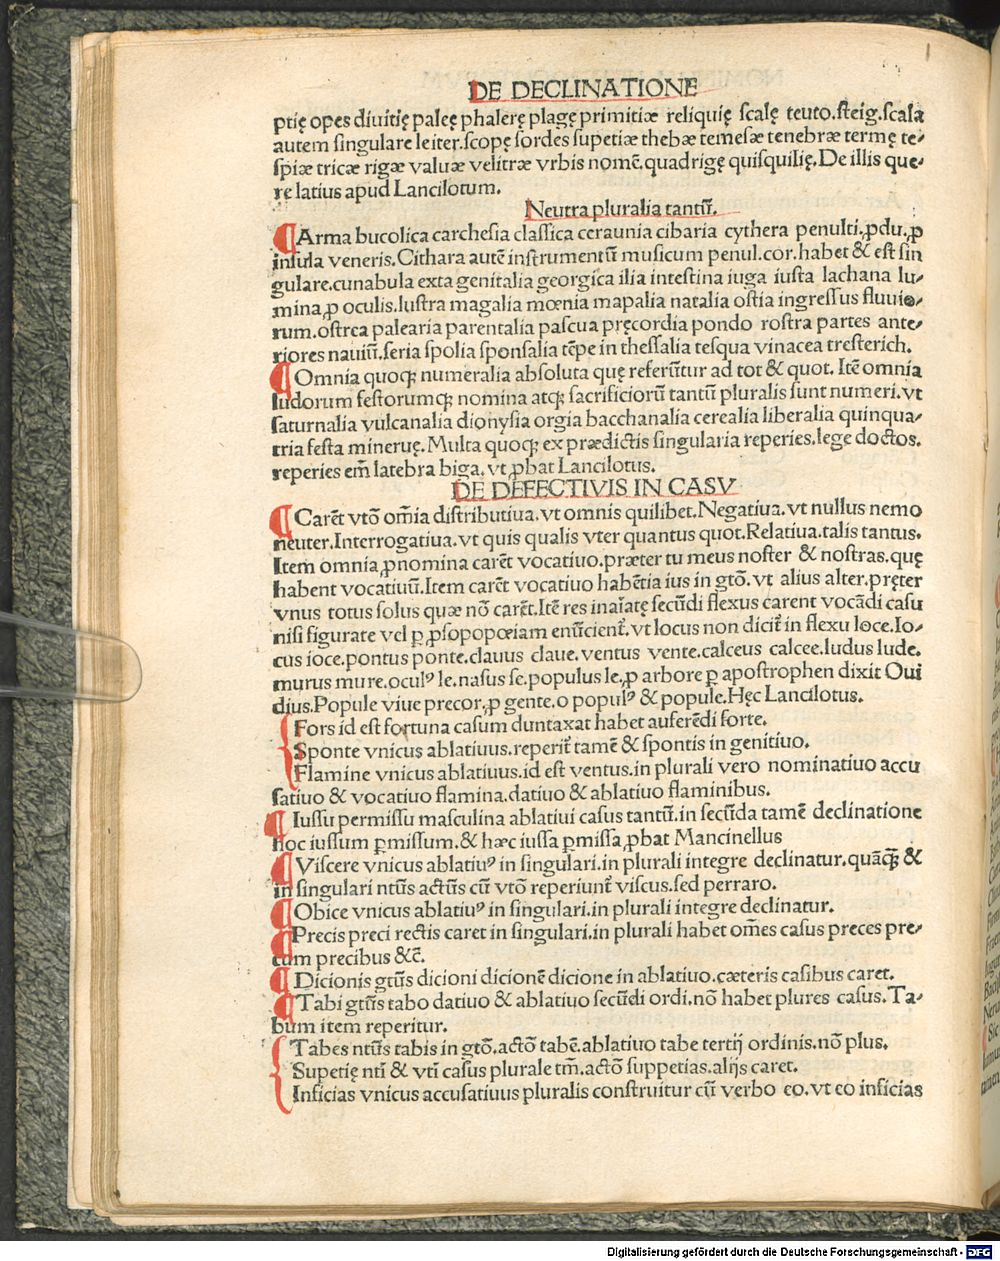 DE DECLINATIONE
ptię opes diuitię paleę phalerę plagę primitiæ reliquię scalę teuto.steig.scala
autem singulare leiter.scopę sordes supetiæ thebæ temesæ tenebræ termę te-
spiæ tricæ rigæ valuæ velitræ vrbis nomē.quadrigę quisquilię.De illis que-
re latius apud Lancilotum.
Neutra pluralia tantū.
¶ Arma bucolica carchesia classica ceraunia cibaria cythera penulti.ꝓdu.ꝓ
insula veneris.Cithara autē instrumentū musicum penul.cor.habet & est sin
gulare.cunabula exta genitalia georgica ilia intestina iuga iusta lachana lu-
mina,ꝓ oculis.lustra magalia mœnia mapalia natalia ostia ingressus fluuio-
rum.ostrea palearia parentalia pascua pręcordia pondo rostra partes ante-
riores nauiū.seria spolia sponsalia tēpe in thessalia tesqua vinacea tresterich.
¶ Omnia quoqꝫ numeralia absoluta quę referūtur ad tot & quot. Itē omnia
ludorum festorumqꝫ nomina atqꝫ sacrificiorū tantū pluralis sunt numeri.vt
saturnalia vulcanalia dionysia orgia bacchanalia cerealia liberalia quinqua-
tria festa mineruę.Multa quoqꝫ ex prædictis singularia reperies.lege doctos.
reperies em̄ latebra biga.vt ꝓbat Lancilotus.
DE DEFECTIVIS IN CASV
¶ Carēt vtō om̄ia distributiua.vt omnis quilibet.Negatiua.vt nullus nemo
neuter.Interrogatiua.vt quis qualis vter quantus quot.Relatiua.talis tantus.
Item omnia ꝓnomina carēt vocatiuo.præter tu meus noster & nostras.quę
habent vocatiuū.Item carēt vocatiuo habētia ius in gtō.vt alius alter.pręter
vnus totus solus quæ nō carēt.Itē res inaīatę secūdi flexus carent vocādi casu
nisi figurate vel ꝑ ꝓsopopœiam enūcient᷑.vt locus non dicit᷑ in flexu loce.Io-
cus ioce.pontus ponte.clauus claue.ventus vente.calceus calcee.ludus lude.
murus mure.oculꝰ le.nasus se.populus le,ꝓ arbore ꝑ apostrophen dixit Oui
dius.Popule viue precor,ꝓ gente.o populꝰ & popule.Hęc Lancilotus.
Fors id est fortuna casum duntaxat habet auferēdi forte.
Sponte vnicus ablatiuus.reperit᷑ tamē & spontis in genitiuo.
Flamine vnicus ablatiuus.id est ventus.in plurali vero nominatiuo accu
satiuo & vocatiuo flamina.datiuo & ablatiuo flaminibus.
¶ Iussu permissu masculina ablatiui casus tantū.in secūda tamē declinatione
hoc iussum ꝑmissum.& hæc iussa ꝑmissa ꝓbat Mancinellus
¶ Viscere vnicus ablatiuꝰ in singulari.in plurali integre declinatur.quāqꝫ̄ &
in singulari ntūs actūs cū vtō reperiunt᷑ viscus.sed perraro.
¶ Obice vnicus ablatiuꝰ in singulari.in plurali integre declinatur.
¶ Precis preci rectis caret in singulari.in plurali habet om̄es casus preces pre-
cum precibus &c̄.
¶ Dicionis gtūs dicioni dicionē dicione in ablatiuo.cæteris casibus caret.
¶ Tabi gtūs tabo datiuo & ablatiuo secūdi ordi.nō habet plures casus.Ta-
bum item reperitur.
Tabes ntūs tabis in gtō.actō tabē.ablatiuo tabe tertij ordinis.nō plus.
Supetię ntī & vtī casus plurale tm̄.actō suppetias.alijs caret.
Inficias vnicus accusatiuus pluralis construitur cū verbo eo.vt eo inficias
Digitalisierung gefördert durch die Deutsche Forschungsgemeinschaft - DFG